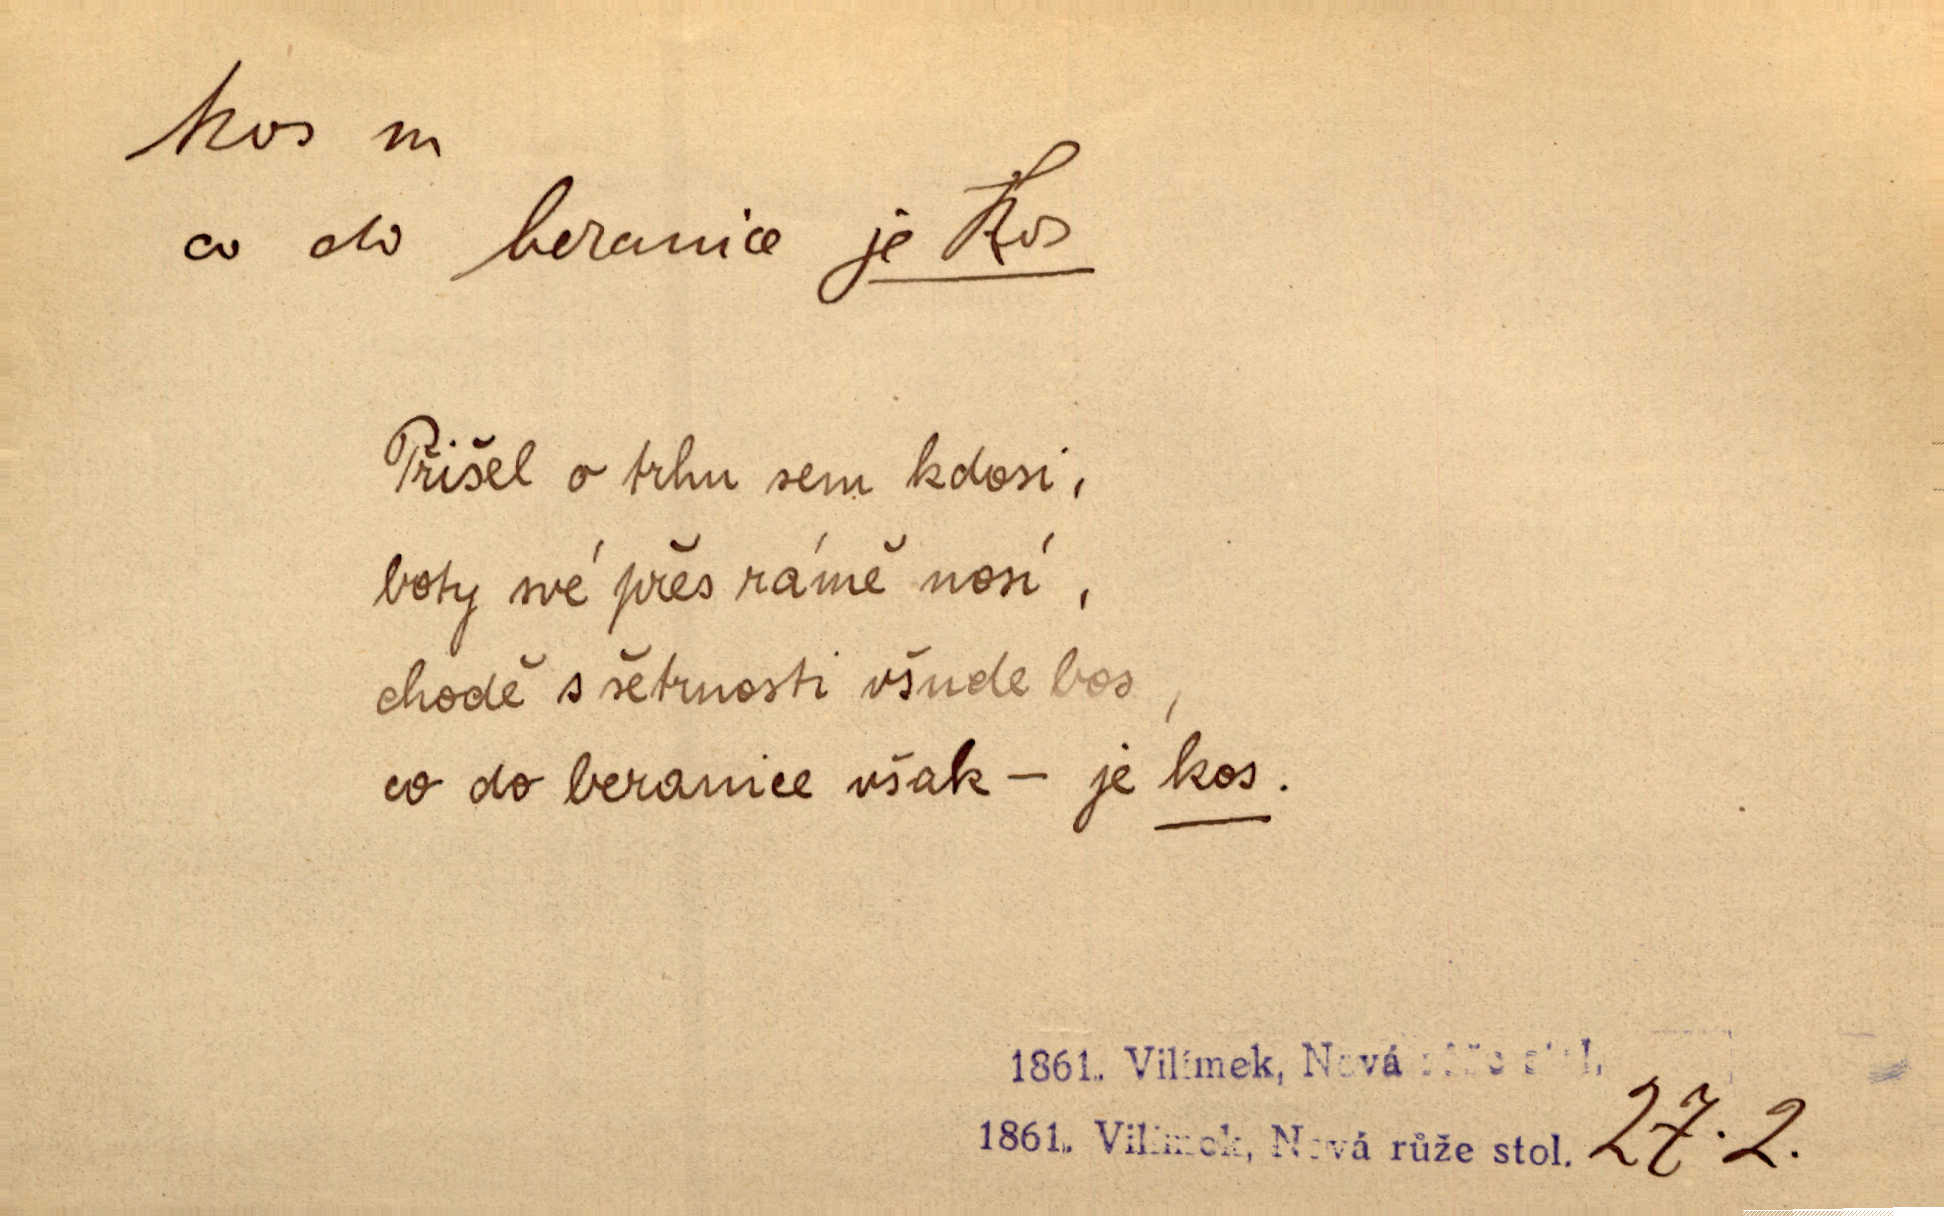 kos m
co do beranice je Kos
Přišel o trhu sem kdosi,
boty své přes rámě nosí,
chodě s šetrnosti všude bos,
co do beranice však – je kos.
1861. Vilímek, Nová růže stol.
1861. Vilímek, Nová růže stol. 27.2.